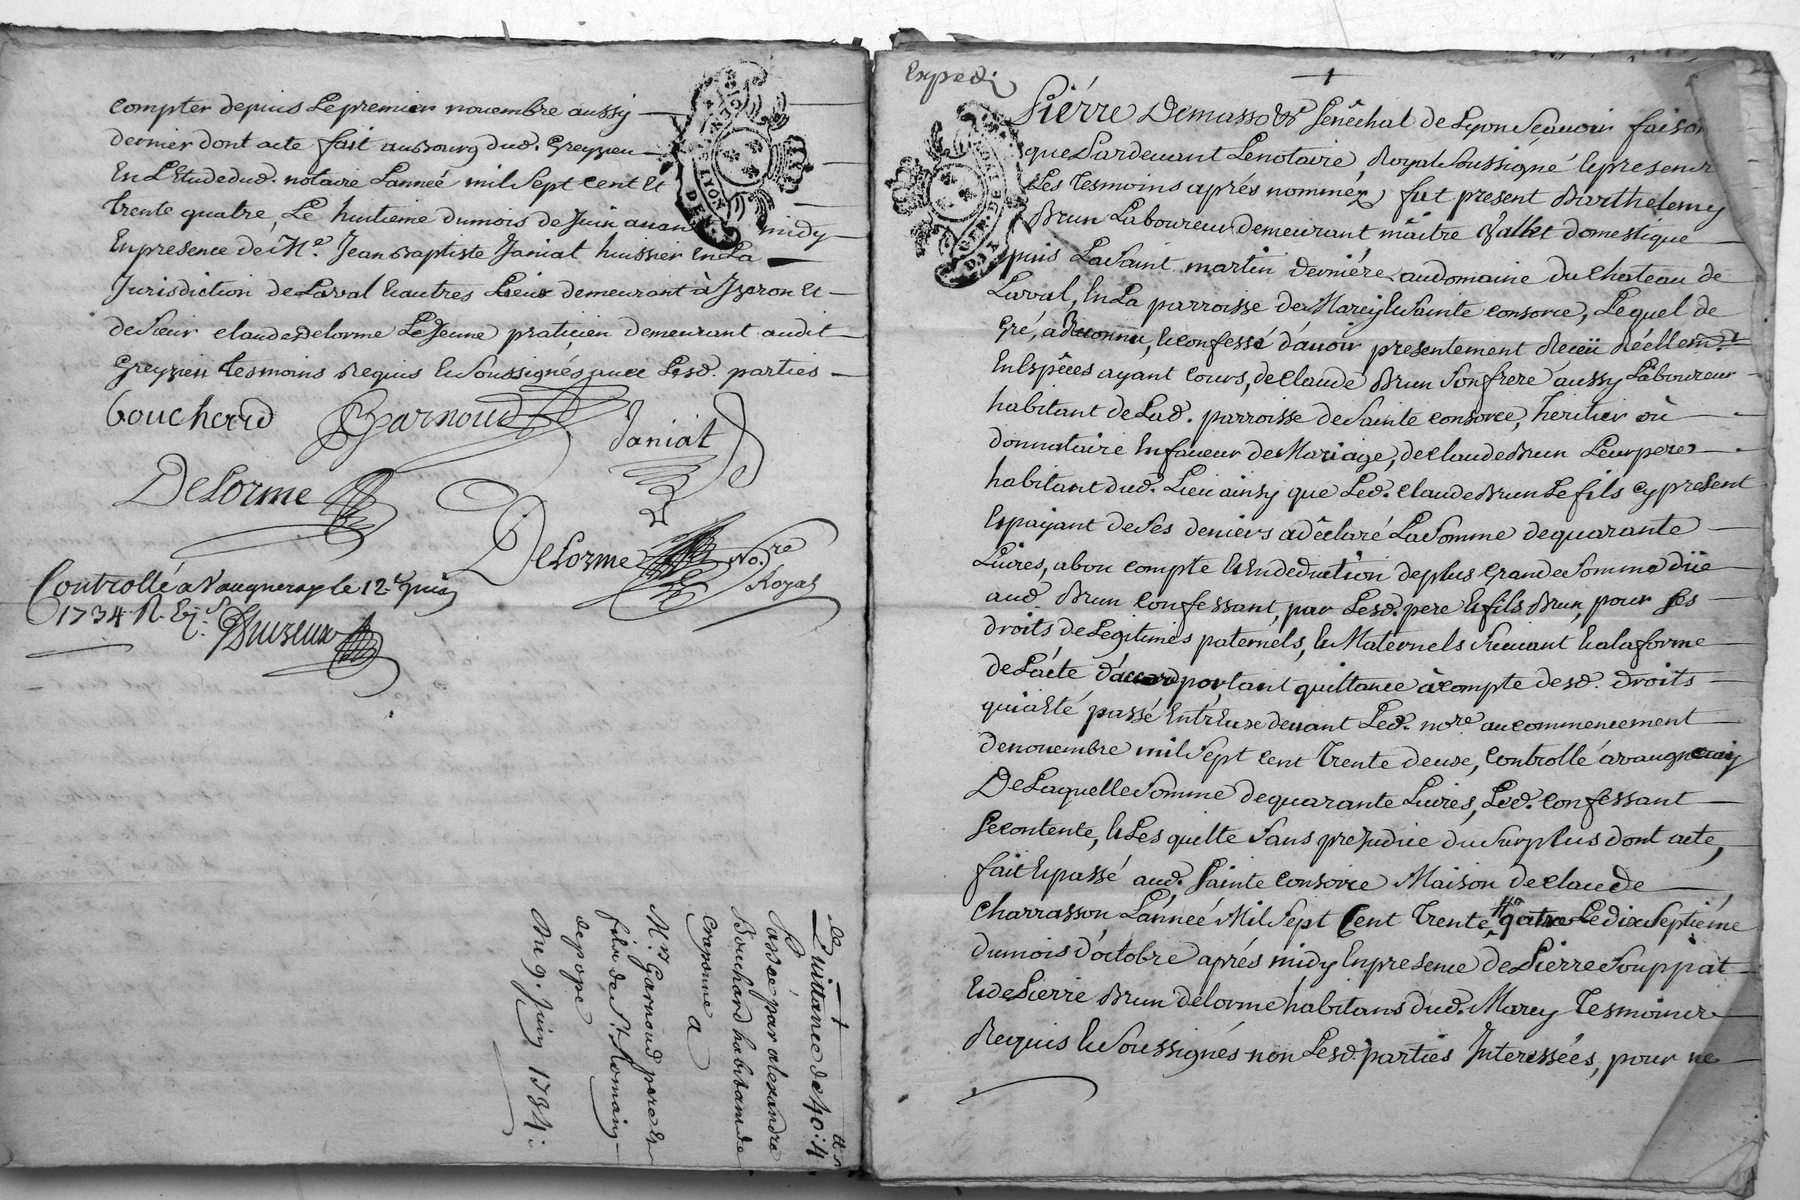 compter depuis Le premier novembre aussy
dernier dont acte fait au bourg dud. Greyzieu
En L'Etude dud. notaire L'année mil Sept Cent Et
trente quatre, Le huitieme du mois de Juin avan midy
En presence de Me. Jean Baptiste Janiat huissier En La
Jurisdiction de Larval Et autres Lieux demeurant à Izeron Et
de Sieur claude delorme Le Jeune praticien demeurant audit
Greyzieu tesmoins Requis Et Soussignés avec Lesd. parties
boucherd Garnoud Janiat
Delorme
Delorme No.re Royal
Controllé a Vaugneray le 12.e Juin
1734 R.
de
Quittance de 40:tt 4 s
Passée par alexandre
Bouchard habitan de
Craponne a
Mrs. Garnoud pere &
fils de St. Romain
de pope
Du 9. Juin 1734:
Exped
Piérre Demasso &c Senéchal de Lyon Scavoir faiso
que Pardevant Le notaire, Royal Soussigné le presenr
Les tesmoins aprés nommez, fut present Barthelemy
Brun Laboureur demeurant maître Vallet domestique
puis La Saint martin derniére au domaine du Chateau de
Larval, En La parroisse de Marcy Le Sainte Consorce, Lequel de
gré, a Reconnu, & confessé d'avoir presentement Receü Réellem.t
En Espéces ayant Cours, de claude Brun Son frere aussy Laboureur
habitant de Lad. parroisse de Sainte Consorce, heritier où
donnataire En faveur de Mariage, de claude Brun Leur pere
habitant dud. Lieu ainsy que Led. claude Brun Le fils cy present
Et payant de Ses deniers a déclaré La Somme de quarante
Livres, a bon compte & En deduction de plus grande Somme düe
aud. Brun Confessant, par Lesd. pere & fils Brun, pour Ses
droits de Legitimes paternels, & Maternels Suivant & a la forme
de L'acte d'accord portant quittance à compte desd. droits
qui a Eté passé Entr'Eux devant Led. no.re au commencement
de novembre mil Sept cent trente deux, Controllé a vaugneray
De Laquelle Somme de quarante Livres, Led. Confessant
Se contente, & Les quitte Sans prejudice du Surplus dont acte,
fait & passé aud. Sainte Consorce Maison de claude
Charrasson L'année Mil Sept Cent Trente qatre Le dix Septiéme
du mois d'octobre aprés midy En presence de Pierre Souppat
& de Pierre Brun delorme habitans dud. Marcy tesmoins
Requis & Soussignés non Lesd. parties Interessées, pour ne